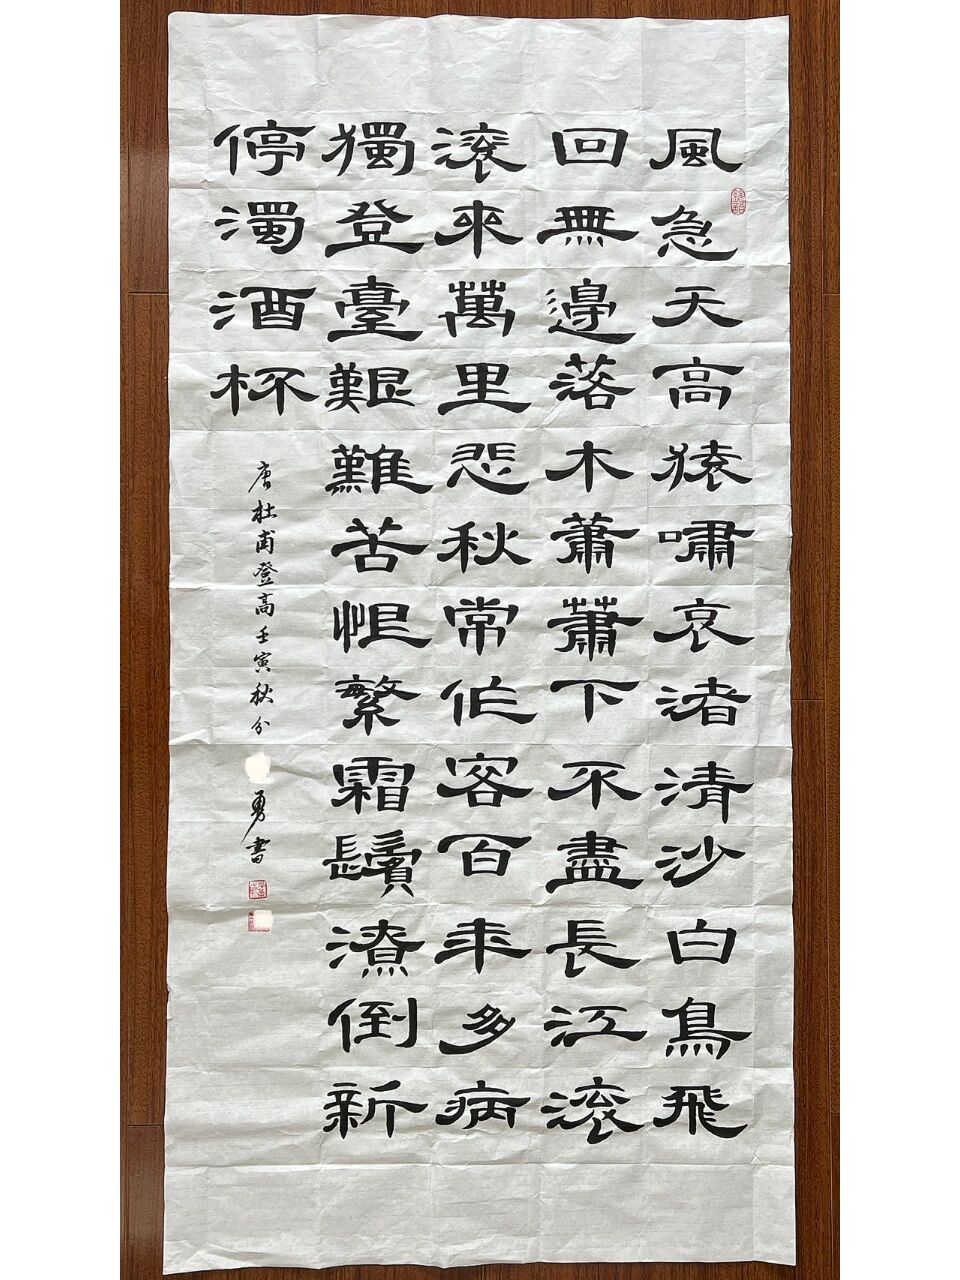 風急天高猿嘯哀渚清沙白鳥飛
回無邊落木蕭蕭下不盡長江滚
滚來萬里悲秋常作客百年多病
獨登臺艱難苦恨繁霜鬢潦倒新
停濁酒杯
唐杜甫登高壬寅秋分
勇書